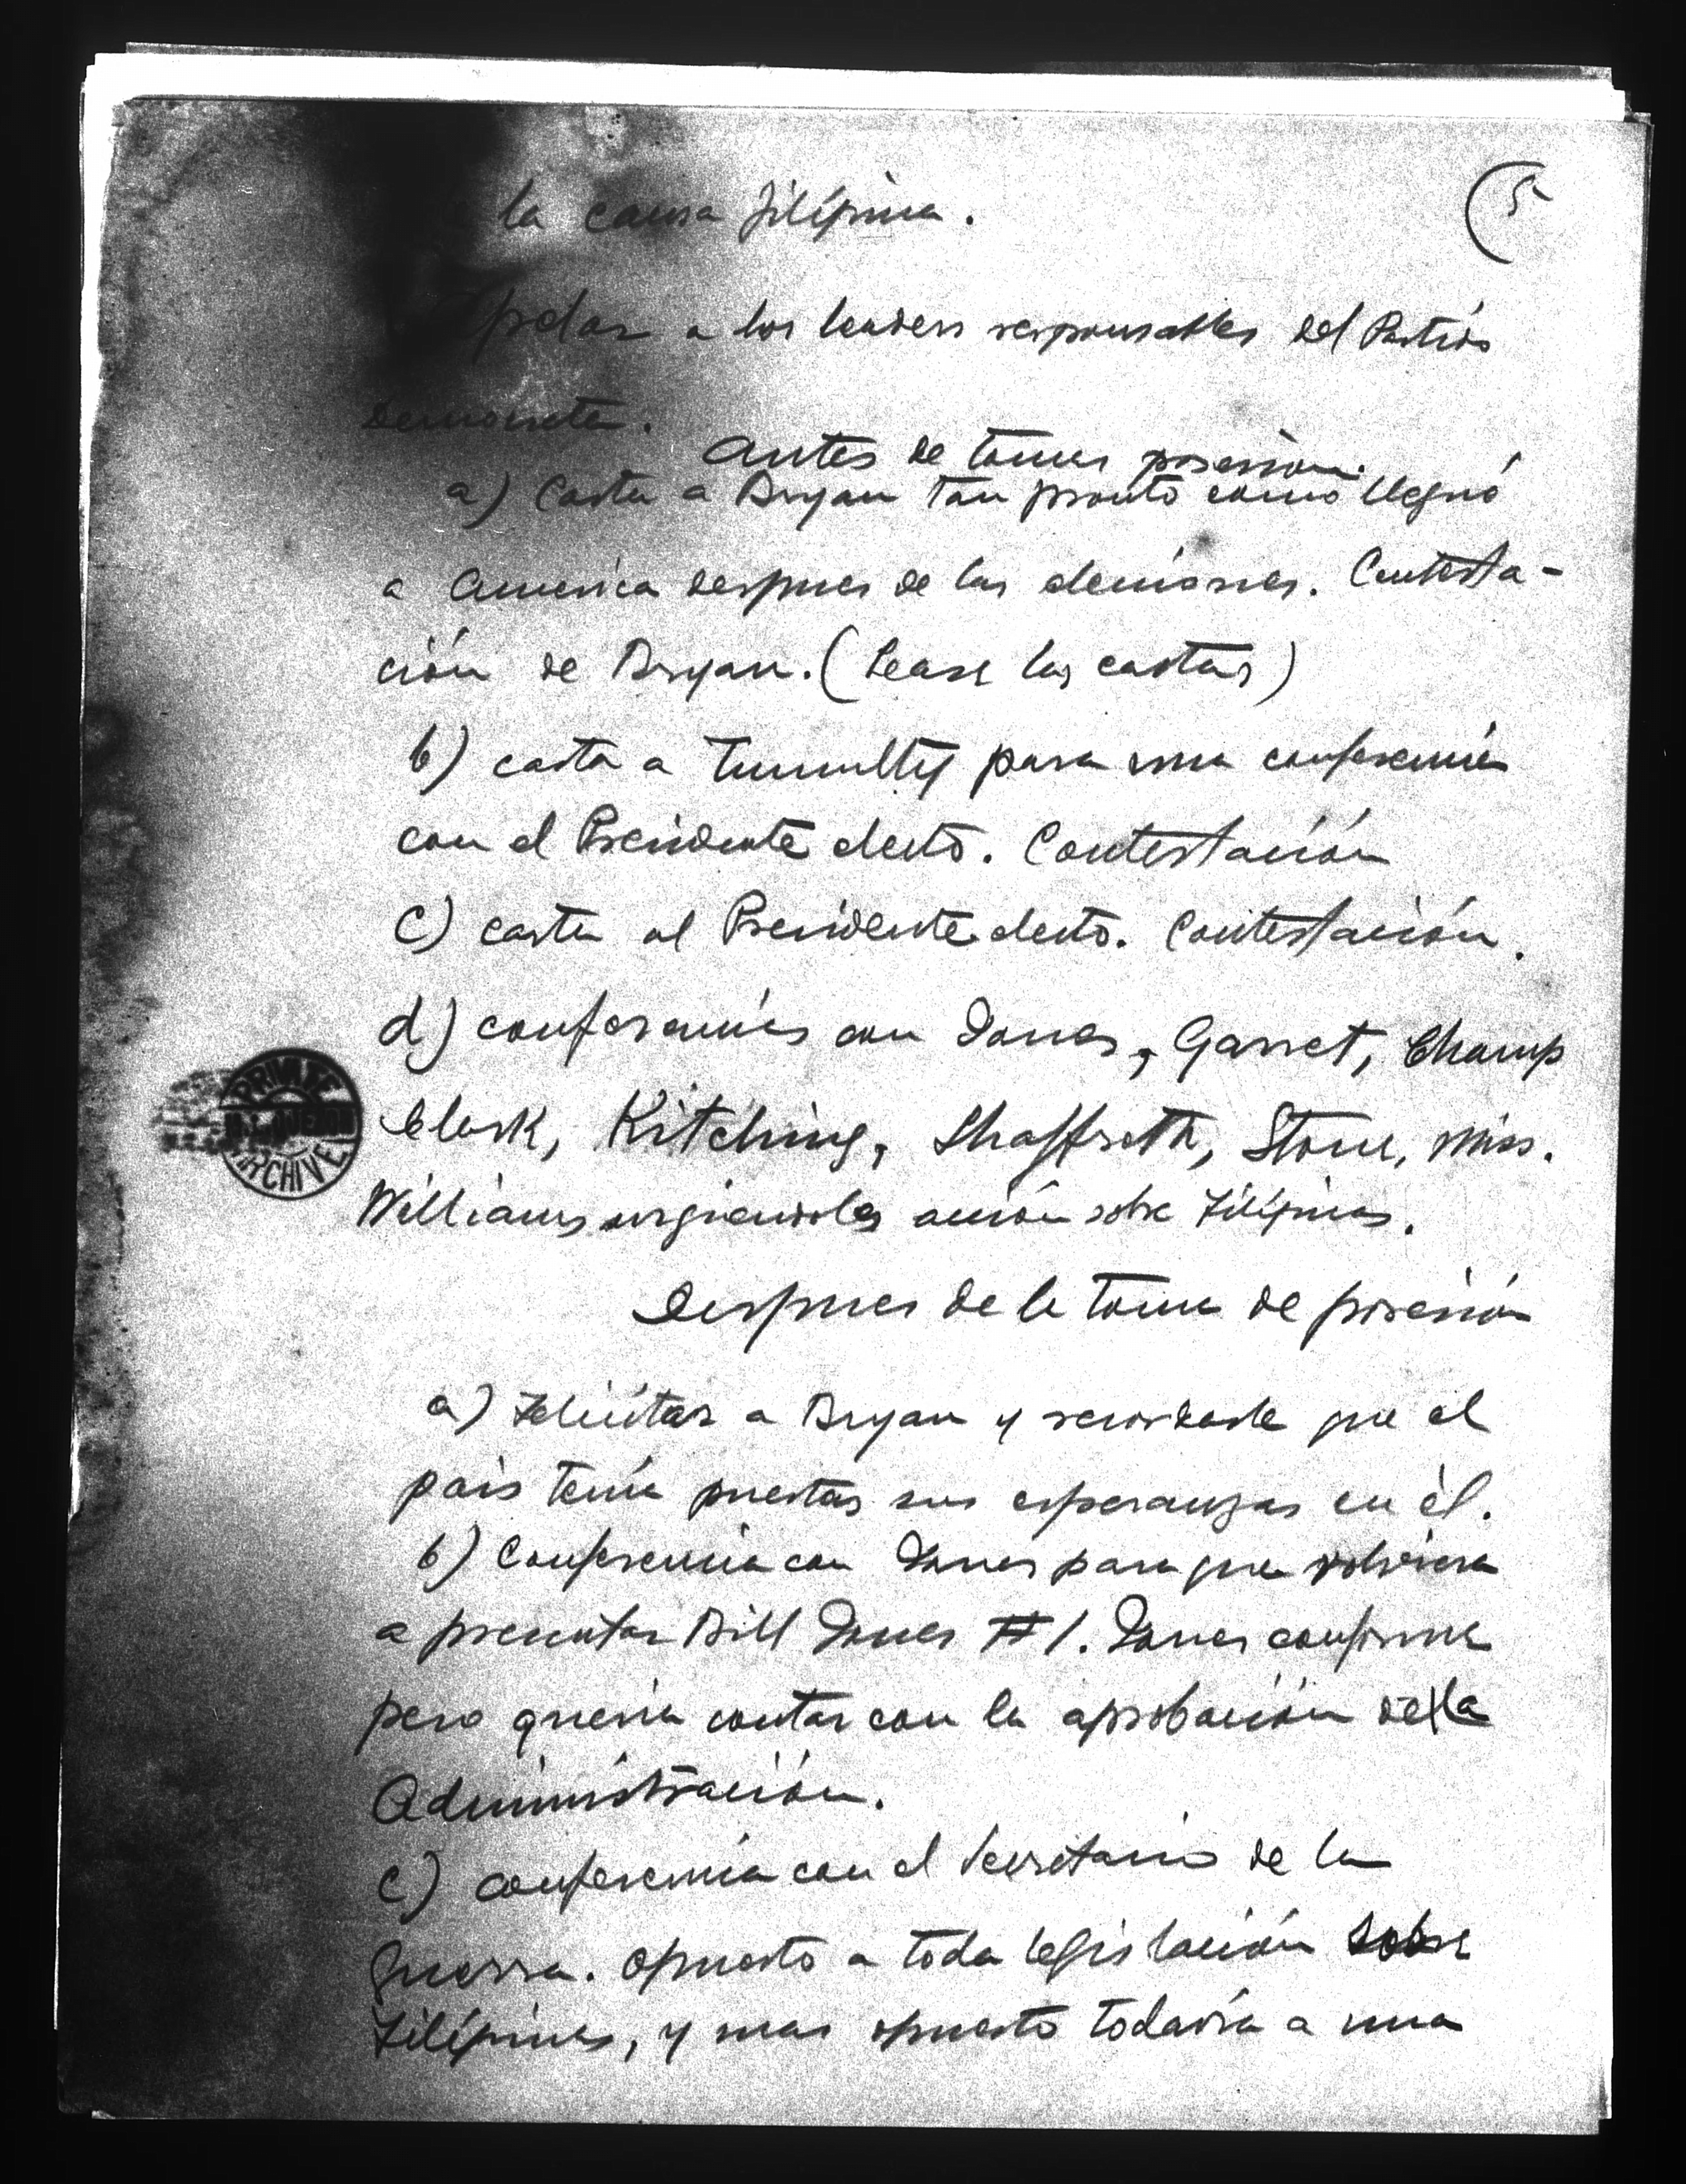 (5
la causa filipina.
apelar a los leaders responsables del Partido
Democrata.
Antes de tomar posesion.
a) Carta a Bryan tan pronto como llegué
a America despues de las elecciones. Contesta-
ción de Bryan. (Lease las cartas)
b) carta a Tumulty para una conferencia
con el Presidente electo. Contestación
c) carta al Presidente electo. Contestación.
d) conferencias con Jones, Garret, Champ
Clark, Kitching, Shaffroth, Stone, Miss.
Williams urgiendoles acción sobre Filipinas.
Despues de la toma de posesión
a) Felicitar a Bryan y recordarle que el
pais tenía puestas sus esperanzas en él.
b) Conferencia con Jones para que volviera
a presentar Bill Jones #1. Jones conforme
pero queria contar con la aprobación de la
Administración.
c) conferencia con el Secretario de la
Guerra. Opuesto a toda legislación sobre
Filipinas, y mas opuesto todavía a una
PRIVATE
M.L. QUEZON
ARCHIVE